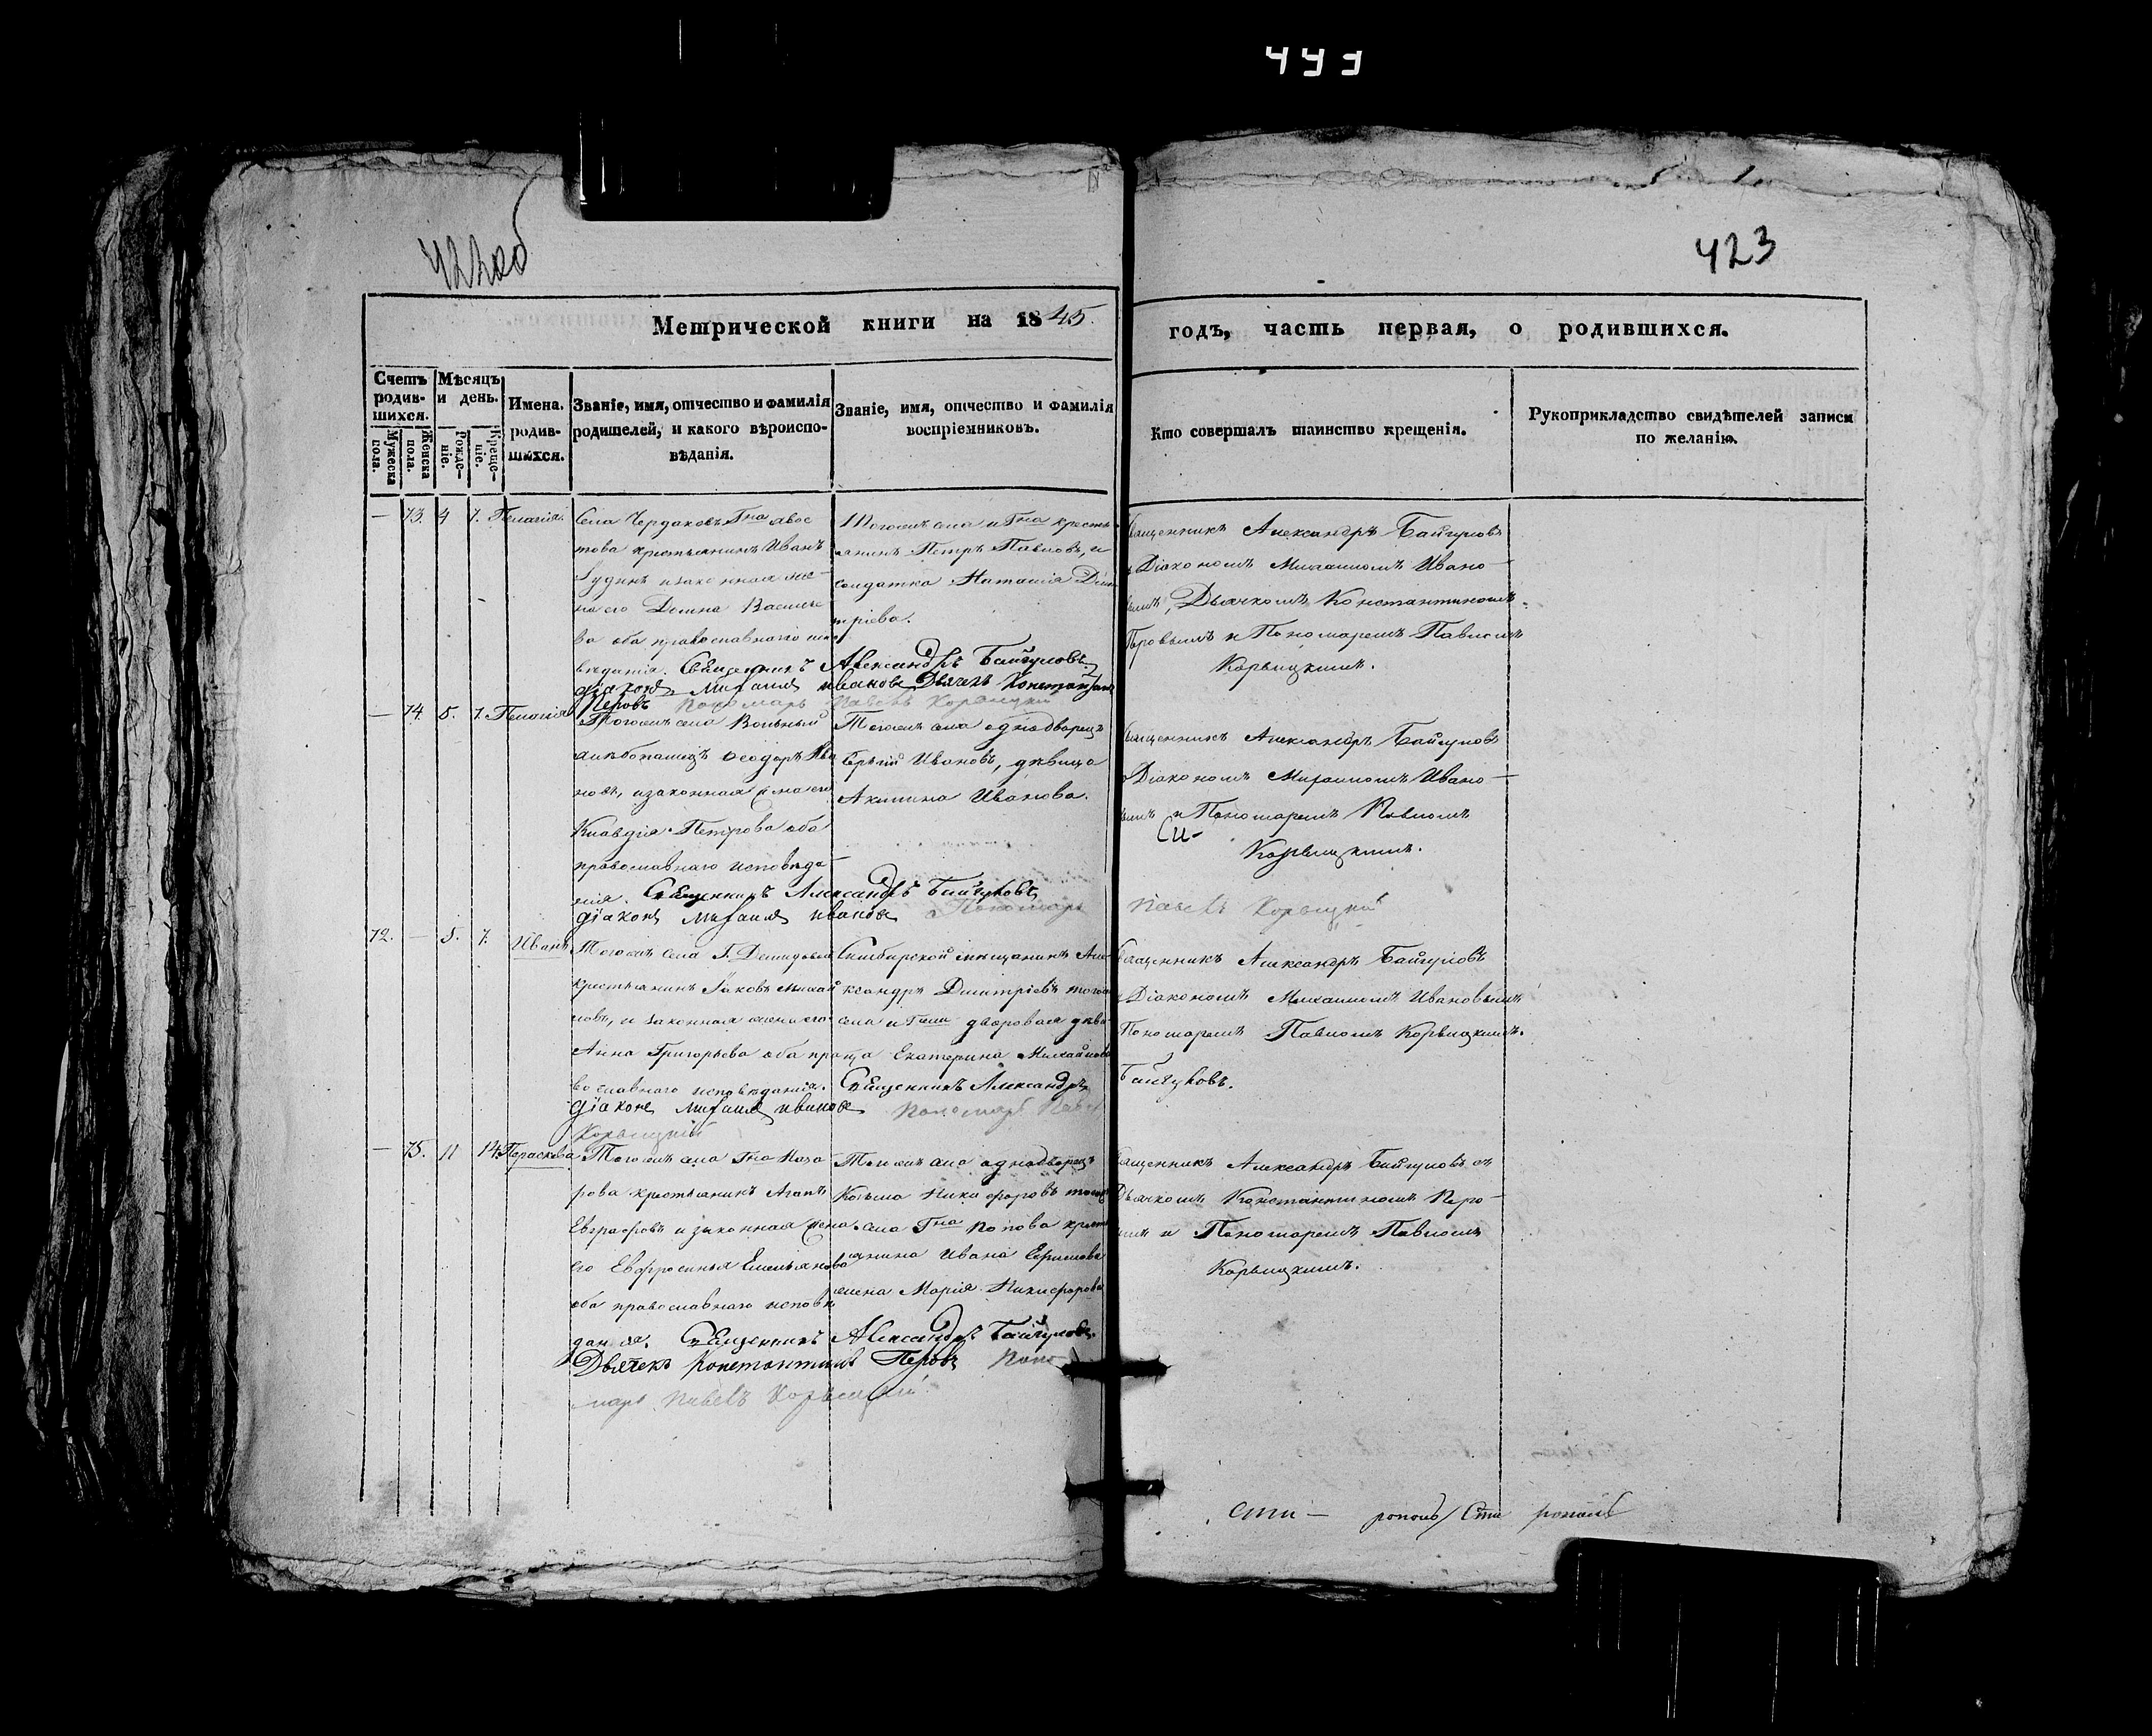 443
422об
423
Метрической книги на 1845. годъ, часть первая, о родившихся.
Счетъ родив-шихся.
Мужеска пола.
Женска пола.
Мѣсяцъ и день.
Рожде-ніе.
Креще-ніе.
Имена родив-шихся.
Званіе, имя, отчество и фамилія родителей, и какого вѣроиспо-вѣданія.
Званіе, имя, отчество и фамилія воспріемниковъ.
Кто совершалъ таинство крещенія.
Рукоприкладство свидѣтелей записи по желанію.
— 73. 4 7. Пелагія.
Села Чердаковъ Гна
това крестьянинъ Иванъ
и законная же-
на его Домна Василье
ва оба православнаго
вѣданія. Священникъ Александръ Байгуловъ
діаконъ Михаилъ Ивановъ Дьячекъ Константинъ
Перовъ Пономарь Павелъ Корвицкій
Тогожъ села и Гна кресть
янинъ Петръ Павловъ, и
солдатка Наталія Дим
тріева.
Священникъ Александръ Байгуловъ
Діакономъ Михаиломъ Ивано-
вымъ, Дьячкомъ Константиномъ
Перовымъ и Пономаремъ Павломъ
Корвицкимъ.
— 74. 5. 7. Пелагія
Тогожъ села Вольный
хлѣбопашецъ Ѳеодоръ Ива
новъ, и законная жена его
Клавдія Петрова оба
православнаго исповѣда-
нія. Священникъ Александръ Байгуловъ
діаконъ Михаилъ Ивановъ Пономарь Павелъ Корвицкій
Тогожъ села однодворецъ
Ивановъ, дѣвица
Акилина Иванова.
Священникъ Александръ Байгуловъ
Діакономъ Михаиломъ Ивано-
вымъ и Пономаремъ Павломъ
Корвицкимъ.
72. — 5. 7. Иванъ
Тогожъ села Г. Демидовой
крестьянинъ Іаковъ Михай
ловъ, и законная жена его
Анна Григорьева оба пра
вославнаго исповѣданія. Священникъ Александръ Байгуловъ.
діаконъ Михаилъ Ивановъ Пономарь Павелъ
Корвицкій
Симбирской мѣщанинъ Але
ксандръ Димитріевъ тогожъ
села и Гжи дворовая дѣви
ца Екатерина Михайлова
Священникъ Александръ Байгуловъ
Діакономъ Михаиломъ Ивановымъ
Пономаремъ Павломъ Корвицкимъ.
— 75. 11 14. Параскева
Тогожъ села Гна Наза
рова крестьянинъ Агапъ
Евграфовъ и законная жена
его Евфросинья Емельянова
оба православнаго исповѣ
данія. Священникъ Александръ Байгуловъ.
Дьячекъ Константинъ Перовъ Поно
марь Павелъ Корвицкій
Тогожъ села однодворецъ
Козьма Никифоровъ тогожъ
села Гна Попова кресть
янина Ивана Ефимова
жена Марія Никифорова
Священникъ Александръ Байгуловъ съ
Дьячкомъ Константиномъ Перо-
вымъ и Пономаремъ Павломъ
Корвицкимъ.